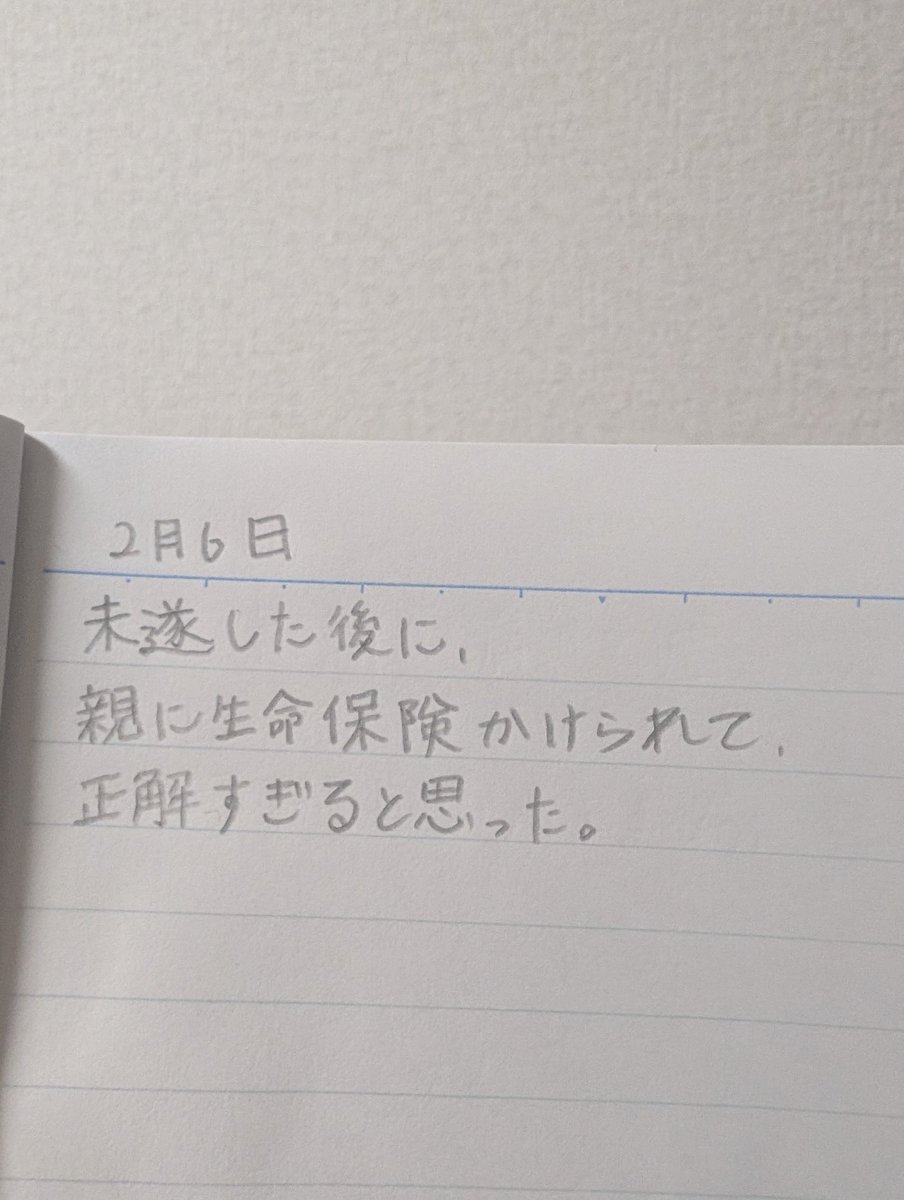 2月6日
未遂した後に、
親に生命保険かけられて、
正解すぎると思った。